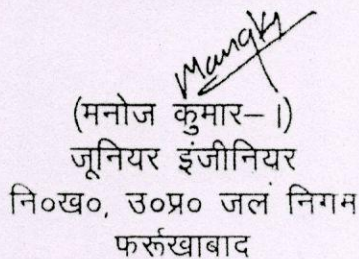 (मनोज कुमार- ।)
जूनियर इंजीनियर
नि०ख०, उ०प्र० जल निगम
फर्रूखाबाद